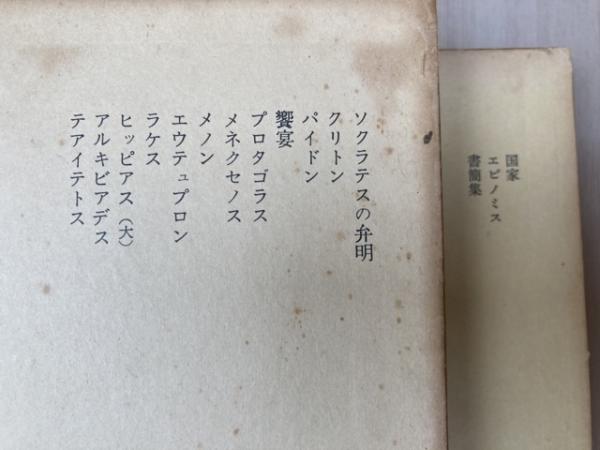 ソクラテスの弁明
クリトン
パイドン
饗宴
プロタゴラス
メネクセノス
メノン
エウテュプロン
ラケス
ヒッピアス（大）
アルキビアデス
テアイテトス
国家
エピノミス
書簡集